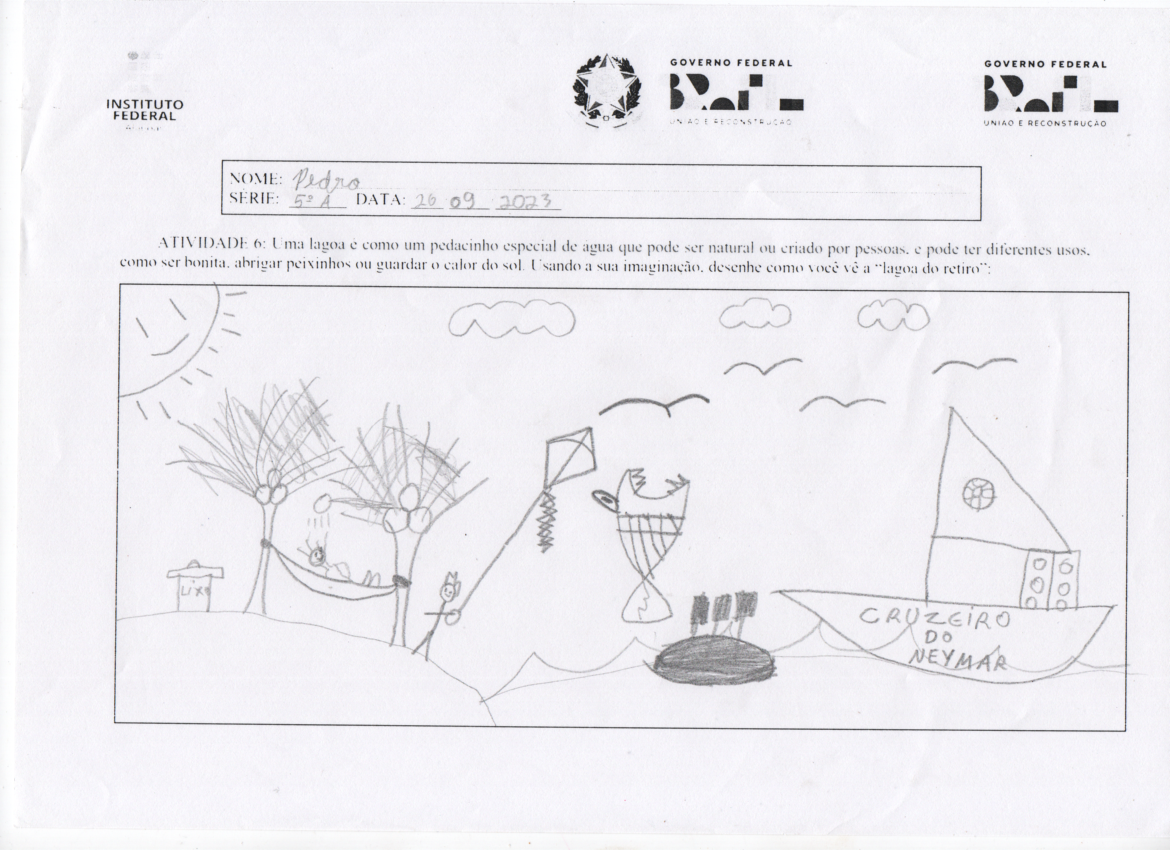 INSTITUTO
FEDERAL
GOVERNO FEDERAL
UNIÃO E RECONSTRUÇÃO
GOVERNO FEDERAL
UNIÃO E RECONSTRUÇÃO
NOME: Pedro
SÉRIE: 5º A DATA: 26 09 2023
ATIVIDADE 6: Uma lagoa é como um pedacinho especial de água que pode ser natural ou criado por pessoas, e pode ter diferentes usos,
como ser bonita, abrigar peixinhos ou guardar o calor do sol. Usando a sua imaginação, desenhe como você vê a “lagoa do retiro”:
LIXO
CRUZEIRO
DO
NEYMAR